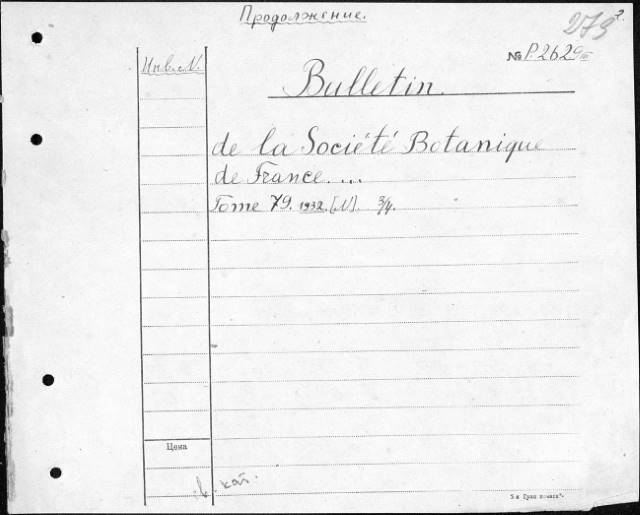 Продолжение.
273 2.
№ P.2629 III
Инв. N.
Bulletin
de la Société Botanique
de France. ...
Tome 79. 1932. [N]. 3/4.
Цена
в. кат.